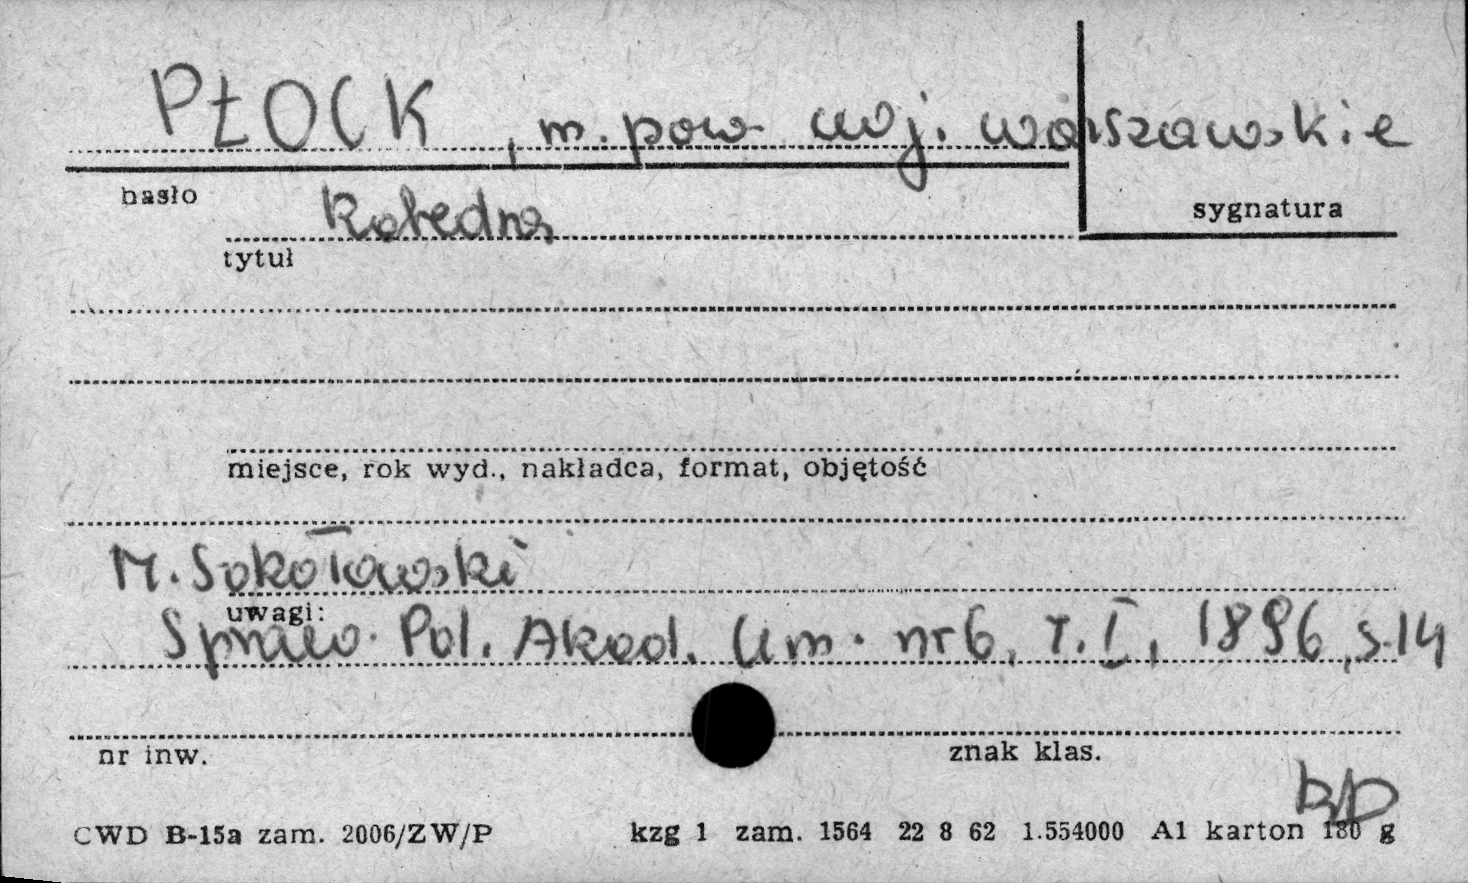 PŁOCK, m. pow. woj. warszawskie
hasło
sygnatura
Katedra
tytuł
miejsce, rok wyd., nakładca, format, objętość
M. Sokołowski
uwagi:
Spraw. Pol. Akad. Um. nr 6, T. I, 1896, s. 14
nr inw.
znak klas.
CWD B-15a zam. 2006/ZW/P
kzg 1 zam. 1564 22 8 62 1.554000 A1 karton 180 g